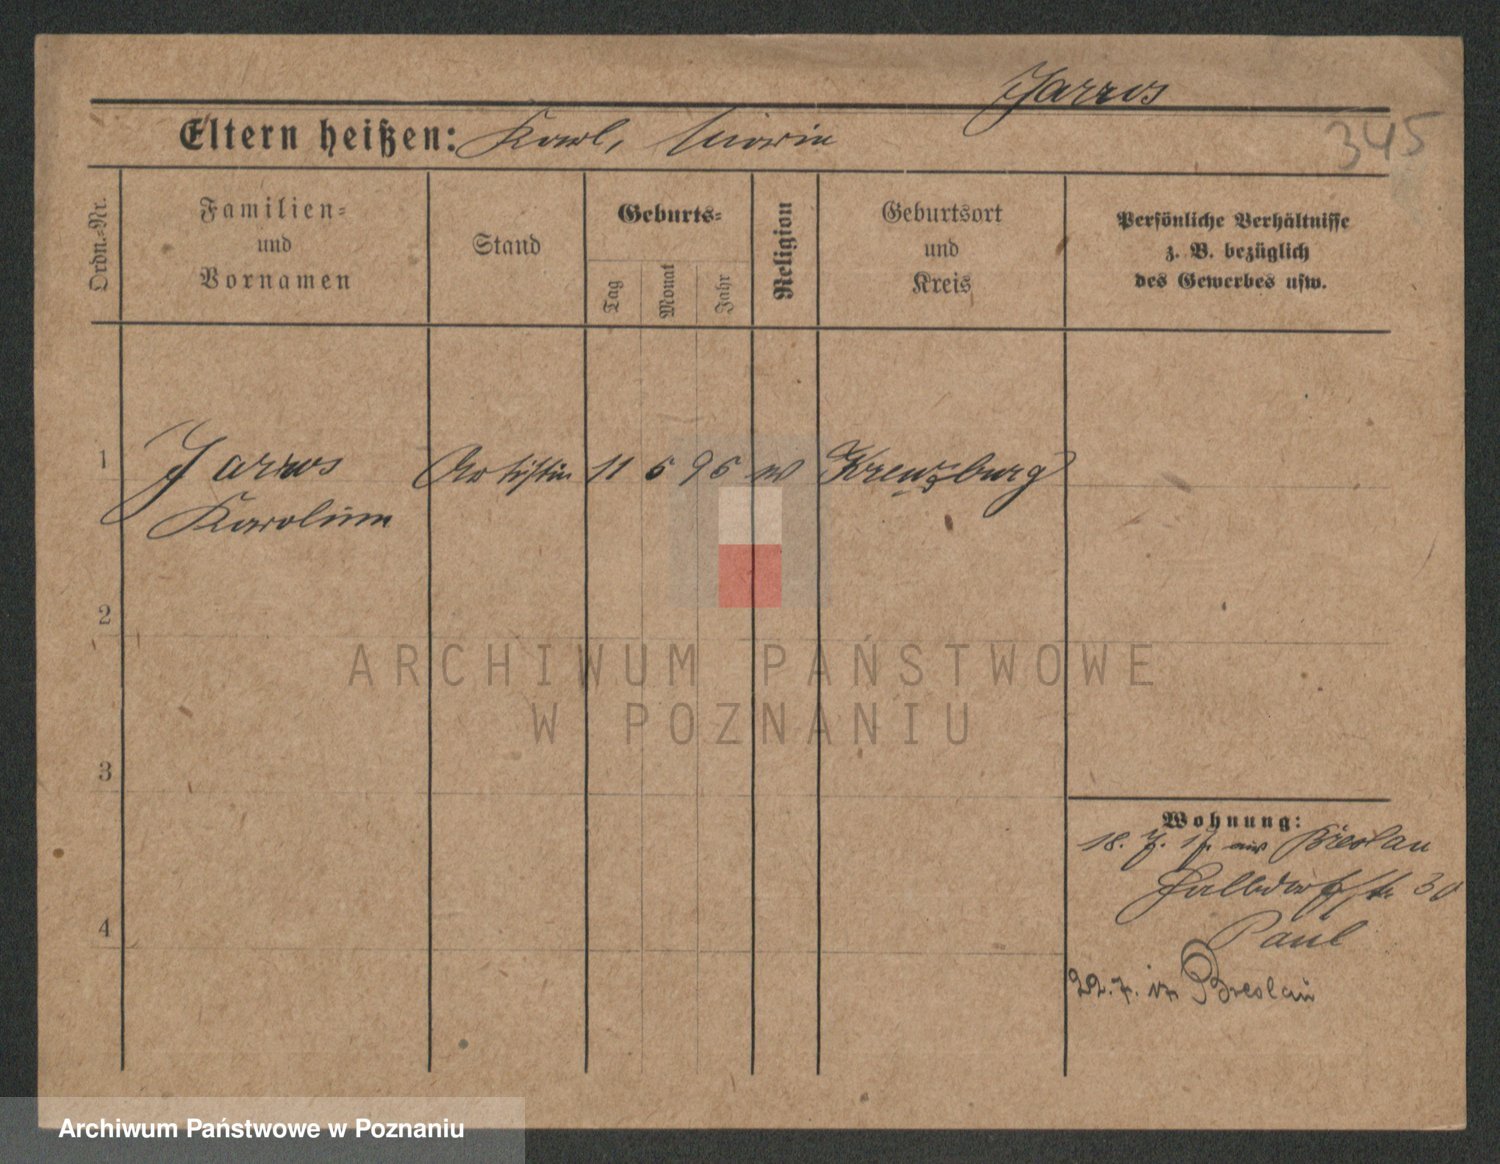 Jarros
Eltern heißen: Karl, Marie
345
Ordn.-Nr.
Familien-
und
Vornamen
Stand
Geburts-
Tag
Monat
Jahr
Religion
Geburtsort
und
Kreis
Persönliche Verhältnisse
z. B. bezüglich
des Gewerbes usw.
1
Jarros Artistin 11 6 96 Kreuzburg
Karoline
2
3
4
Wohnung:
18. 7. 17. aus Breslau
30
Paul
22. 7. Breslau
ARCHIWUM PAŃSTWOWE
W POZNANIU
Archiwum Państwowe w Poznaniu